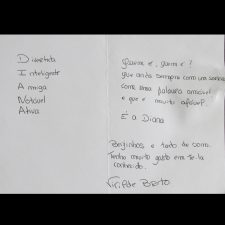 Divertida
Inteligente
Amiga
Notável
Ativa
Quem é, quem é?
Que anda sempre com um sorriso
com uma palavra amável
e que é muito afável?
É a Diana
Beijinhos e tudo de bom.
Tenho muito gosto em te ter
conhecido.